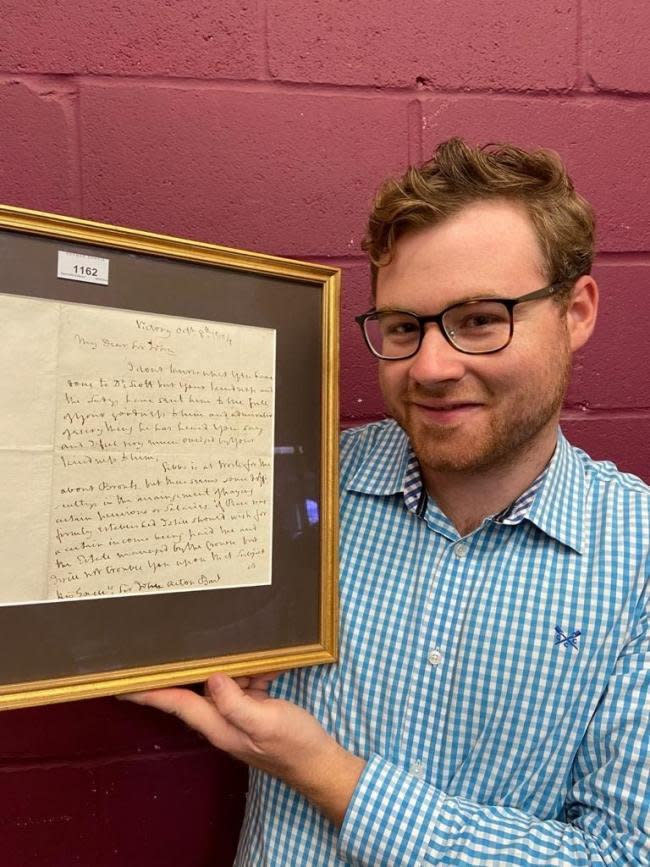 1162
Victory Octr 8th
My Dear Sir John
I do not know what you have
done to Dr Scott but your kindness and
the Ladys have sent him to the full
of your goodness to him and
of every thing he has heard you say
and I feel very much obliged by your
kindness to him,
Gibbs is at work for me
about Bronte, but there seems some diffi
culty in the arrangement of paying
certain pensions or salaries, if Peace was
firmly established I still should wish for
a certain income being paid me and
the Estate managed by the Crown but
I will not trouble You upon that Subject
His Excelly Sir John Acton Bart